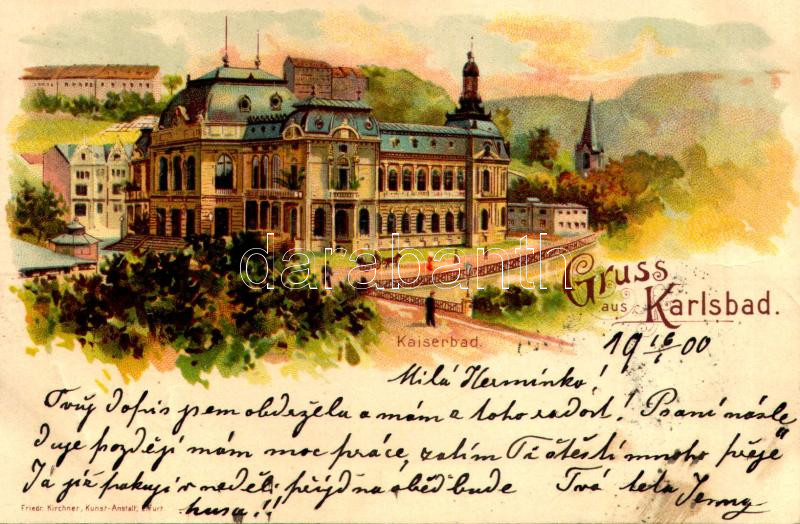 Gruss
aus Karlsbad.
Kaiserbad.
darabanth
19 16/I 00
Milá Hermínko!
Tvůj dopis jsem obdržela a mám z toho radost! Psaní násle„
duje později mám moc práce, zatím Ti štěstí mnoho přeje
Ja již v neděli přijd na oběd bude Tvá teta Jenny
husa!!
Friedr. Kirchner, Kunst-Anstalt, Erfurt.